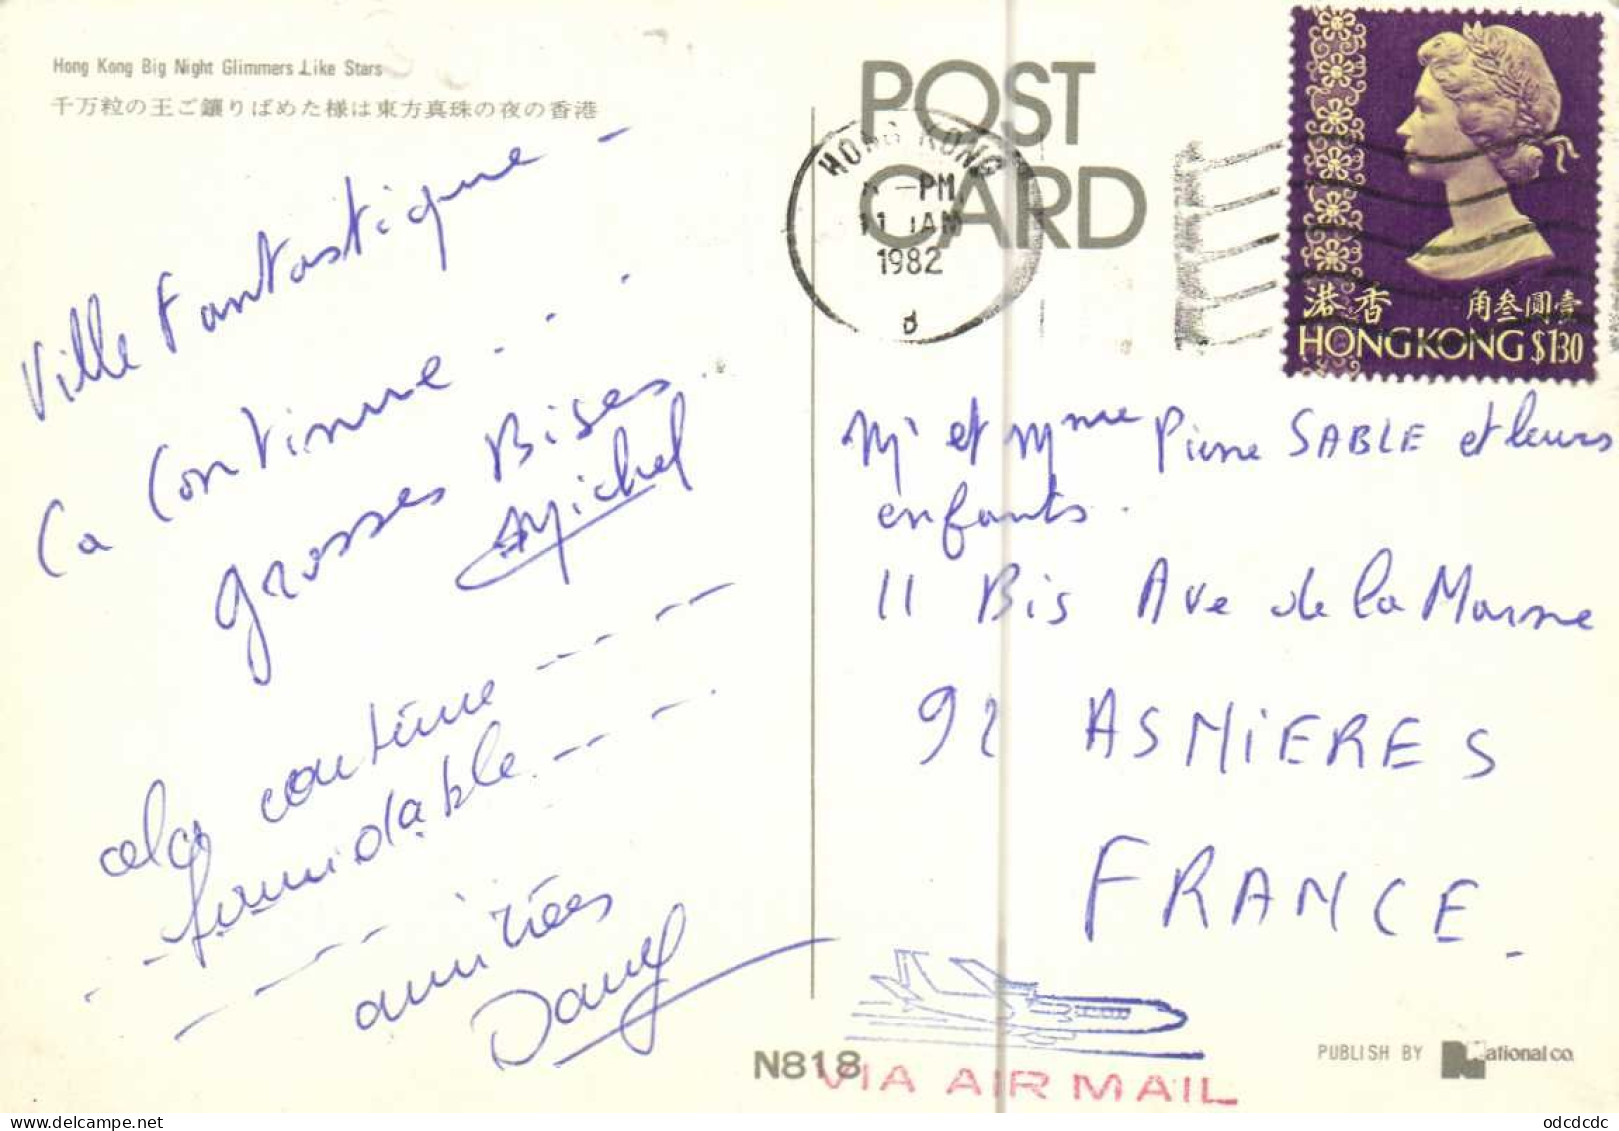 Hong Kong Big Night Glimmers Like Stars
千万粒の王ご鑲りばめた様は東方真珠の夜の香港
Ville Fantastique –
Ca Continue . . .
grosses Bises.
Michel
cela continue
formidable
amitiés
Dany
POST
CARD
HONG KONG
PM
11 JAN
1982
港香 角叁圓壹
HONG KONG $1.30
Mr et Mme Pierre SABLE et leurs
enfants.
11 Bis Ave de la Marne
92 ASNIERES
FRANCE
PUBLISH BY National co.
N818
VIA AIR MAIL
odcdcdc